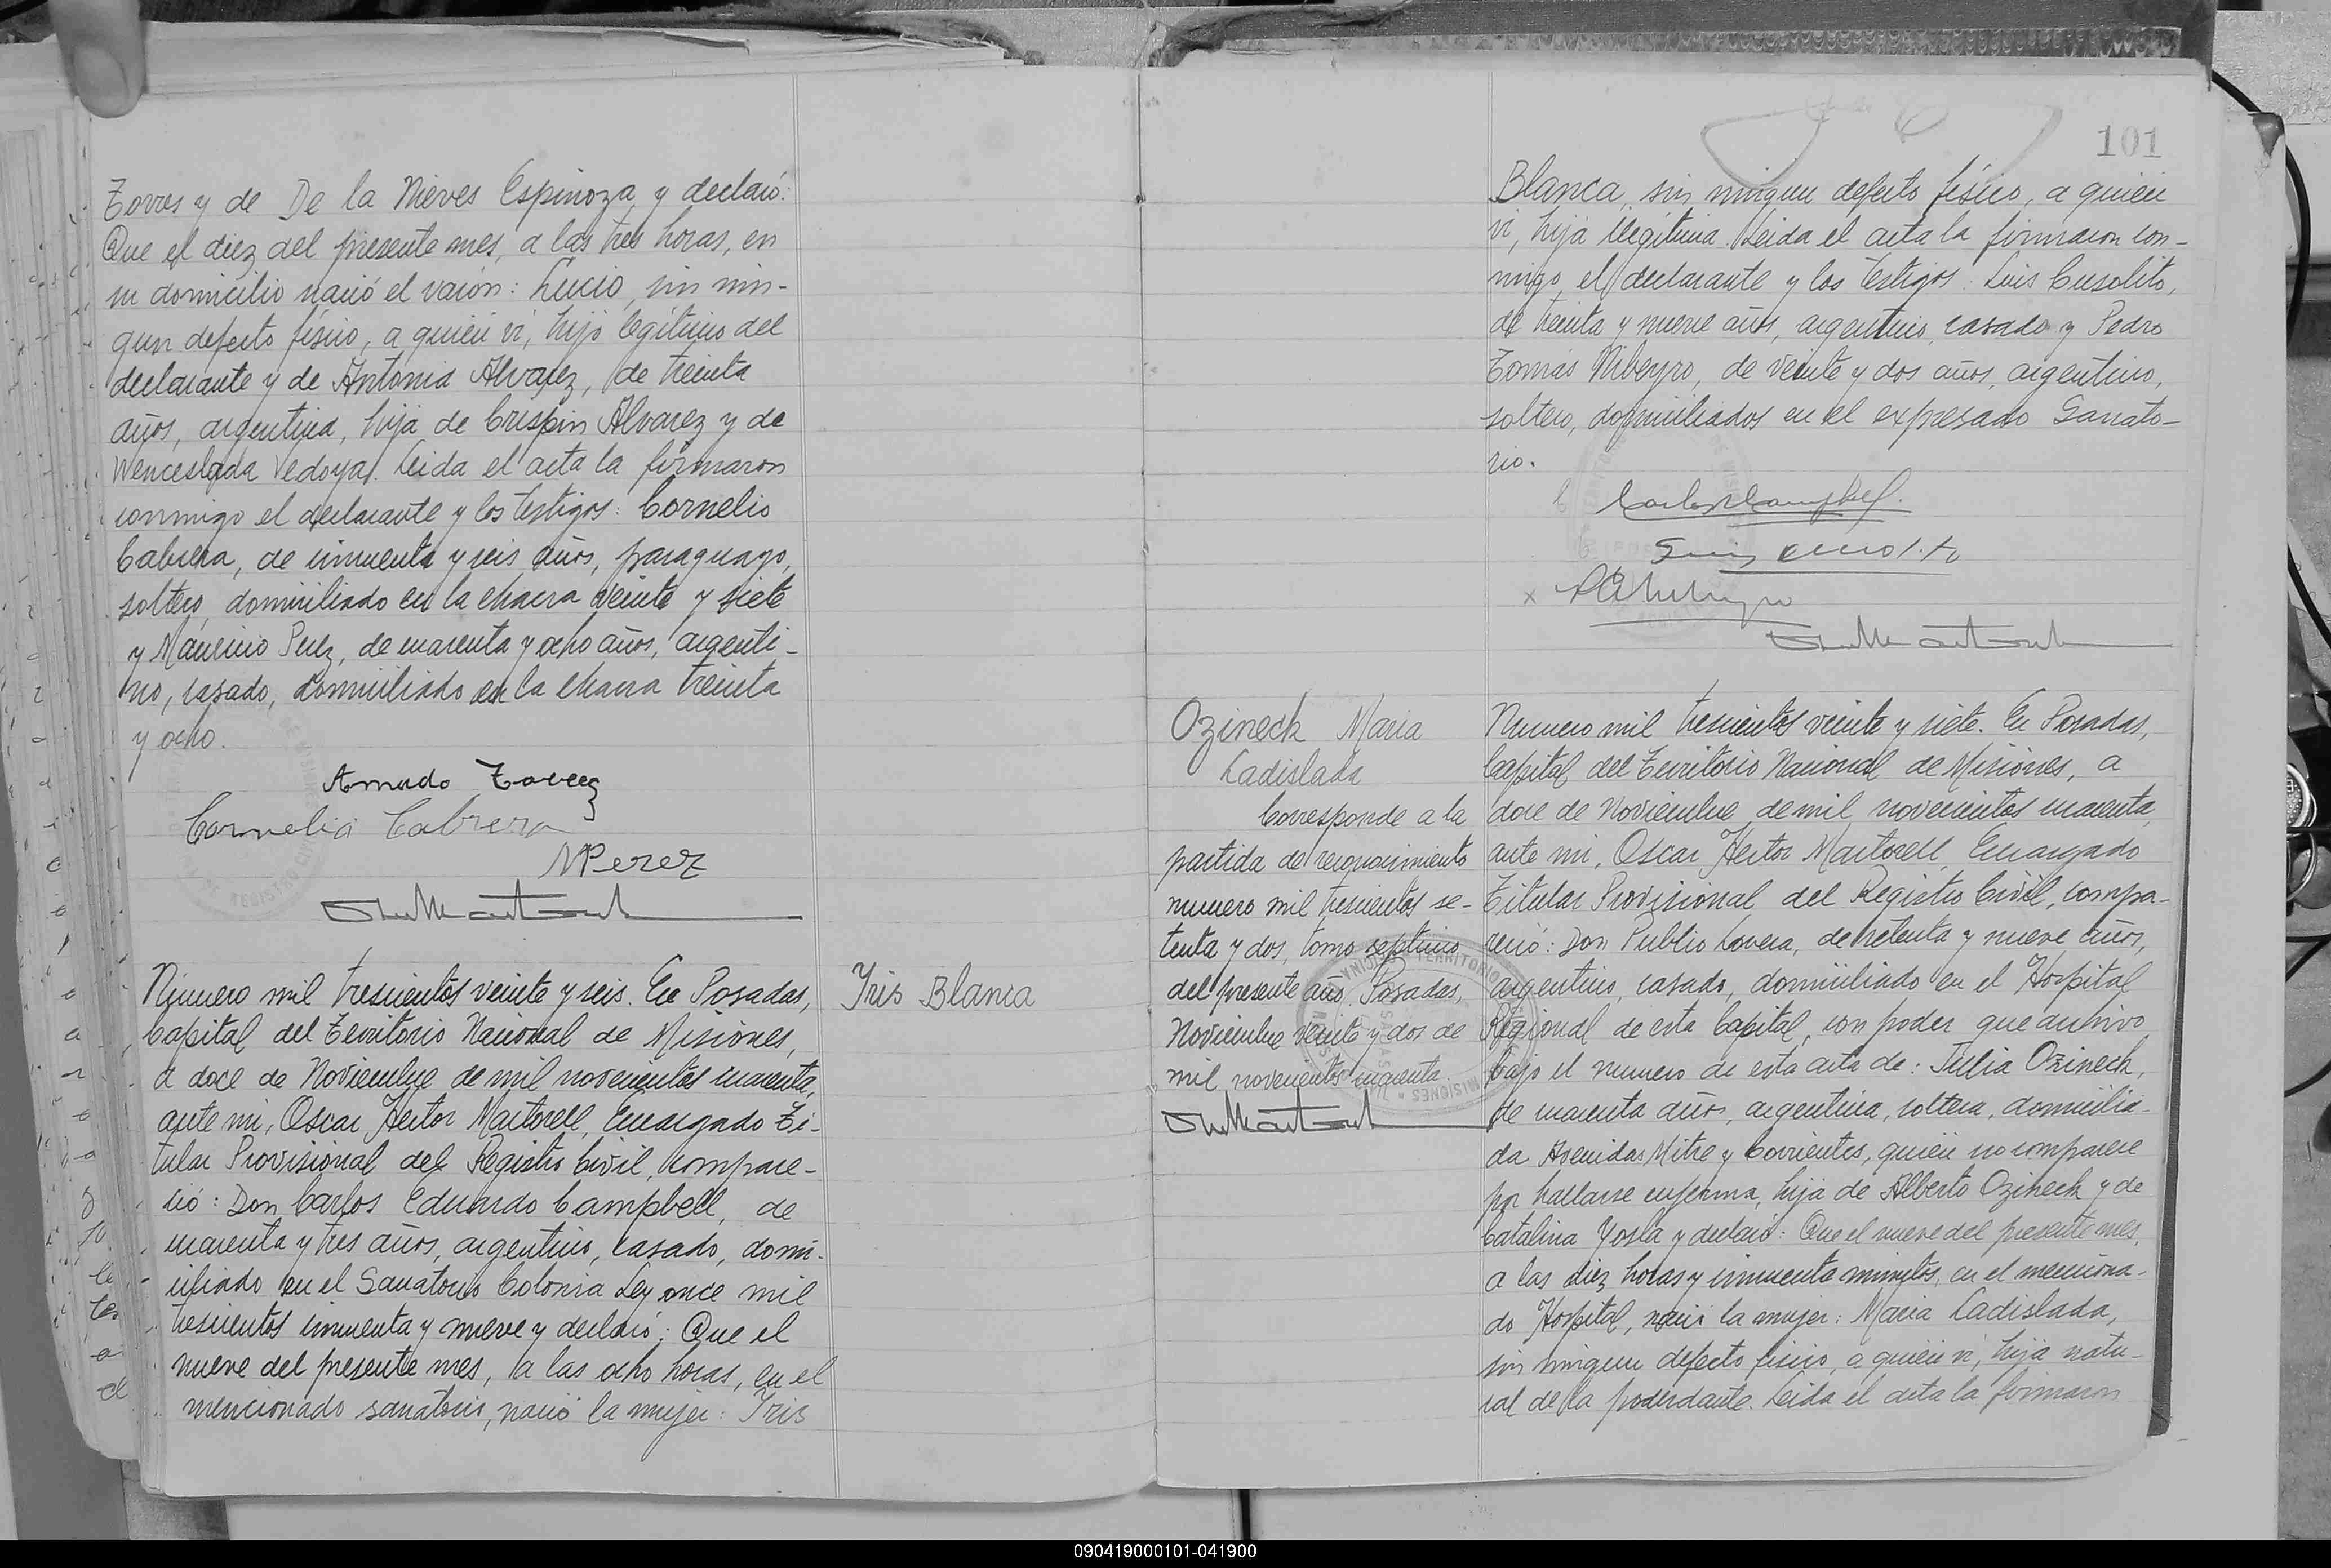 Torres y de De la Nieves Espinoza, y declaró:
Que el diez del presente mes, a las tres horas, en
su domicilio nació el varón: Lucio, sin nin-
gun defecto físico, a quien vi, hijo legítimo del
declarante y de Antonia Alvarez, de treinta
años, argentina, hija de Crispin Alvarez y de
Wenceslada Vedoya. Leida el acta la firmaron
conmigo el declarante y los testigos: Cornelio
Cabrera, de cincuenta y seis años, paraguayo,
soltero, domiciliado en la chacra veinte y siete
y Mauricio Perez, de cuarenta y ocho años, argenti-
no, casado, domiciliado en la chacra treinta
y ocho.
Amado Torres
Cornelio Cabrera
MPerez
Número mil trescientos veinte y seis. En Posadas,
Capital del Territorio Nacional de Misiones,
a doce de Noviembre de mil novecientos cuarenta,
ante mi, Oscar Hector Martorell, Encargado Ti-
tular Provisional del Registro Civil, compare-
ció: Don Carlos Eduardo Campbell, de
cuarenta y tres años, argentino, casado, domi-
ciliado en el Sanatorio Colonia Ley once mil
trescientos cincuenta y nueve y declaró: Que el
nueve del presente mes, a las ocho horas, en el
mencionado sanatorio, nació la mujer: Iris
Iris Blanca
101
Blanca, sin ningun defecto físico, a quien
vi, hija ilegítima. Leida el acta la firmaron con-
migo, el declarante y los testigos: Luis Cusolito,
de treinta y nueve años, argentino, casado y Pedro
Tomás Nibeyro, de veinte y dos años, argentino,
soltero, domiciliados en el expresado Sanato-
rio.
Ozineck Maria
Ladislada
Corresponde a la
partida de reconocimiento
numero mil trescientos se-
tenta y dos, tomo septimo
del presente año. Posadas,
Noviembre veinte y dos de
mil novecientos cuarenta.
Numero mil trescientos veinte y siete. En Posadas,
Capital del Territorio Nacional de Misiones, a
doce de Noviembre de mil novecientos cuarenta,
ante mi, Oscar Hector Martorell, Encargado
Titular Provisional del Registro Civil, compa-
reció: Don Publio Lovera, de setenta y nueve años,
argentino, casado, domiciliado en el Hospital
Regional de esta Capital, con poder que archivo
bajo el numero de esta acta de: Julia Ozineck,
de cuarenta años, argentina, soltera, domicilia-
da Avenidas Mitre y Corrientes, quien no comparece
por hallarse enferma, hija de Alberto Ozineck y de
Catalina Yosla y declaró: Que el nueve del presente mes,
a las diez horas y cincuenta minutos, en el menciona-
do Hospital, nació la mujer: Maria Ladislada,
sin ningun defecto fisico, a quien vi, hija natu-
ral de la poderdante. Leida el acta la firmaron
090419000101-041900